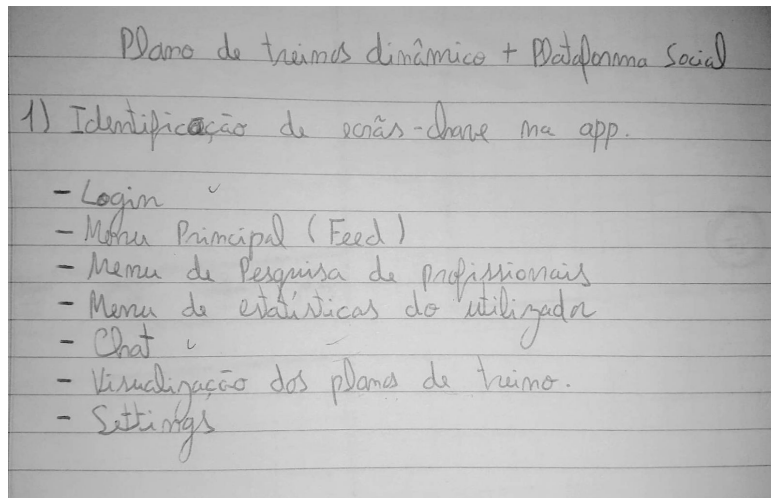 Plano de treinos dinâmico + Plataforma Social
1) Identificação de ecrãs-chave na app.
- Login
- Menu Principal (Feed)
- Menu de Pesquisa de profissionais
- Menu de estatísticas do utilizador
- Chat
- Visualização dos planos de treino.
- Settings